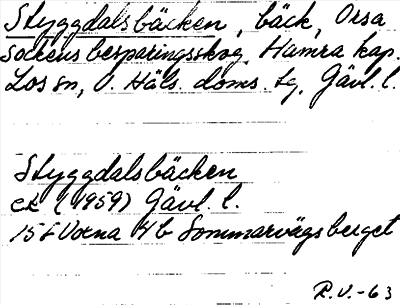 Styggdalsbäcken, bäck, Orsa
sockens besparingsskog, Hamra kap.
Los sn, V. Häls. doms. tg, Gävl. l.
Styggdalsbäcken
ek (1959) Gävl. l.
15 F Voxna 4 b Sommarvägsberget
R.V.-63